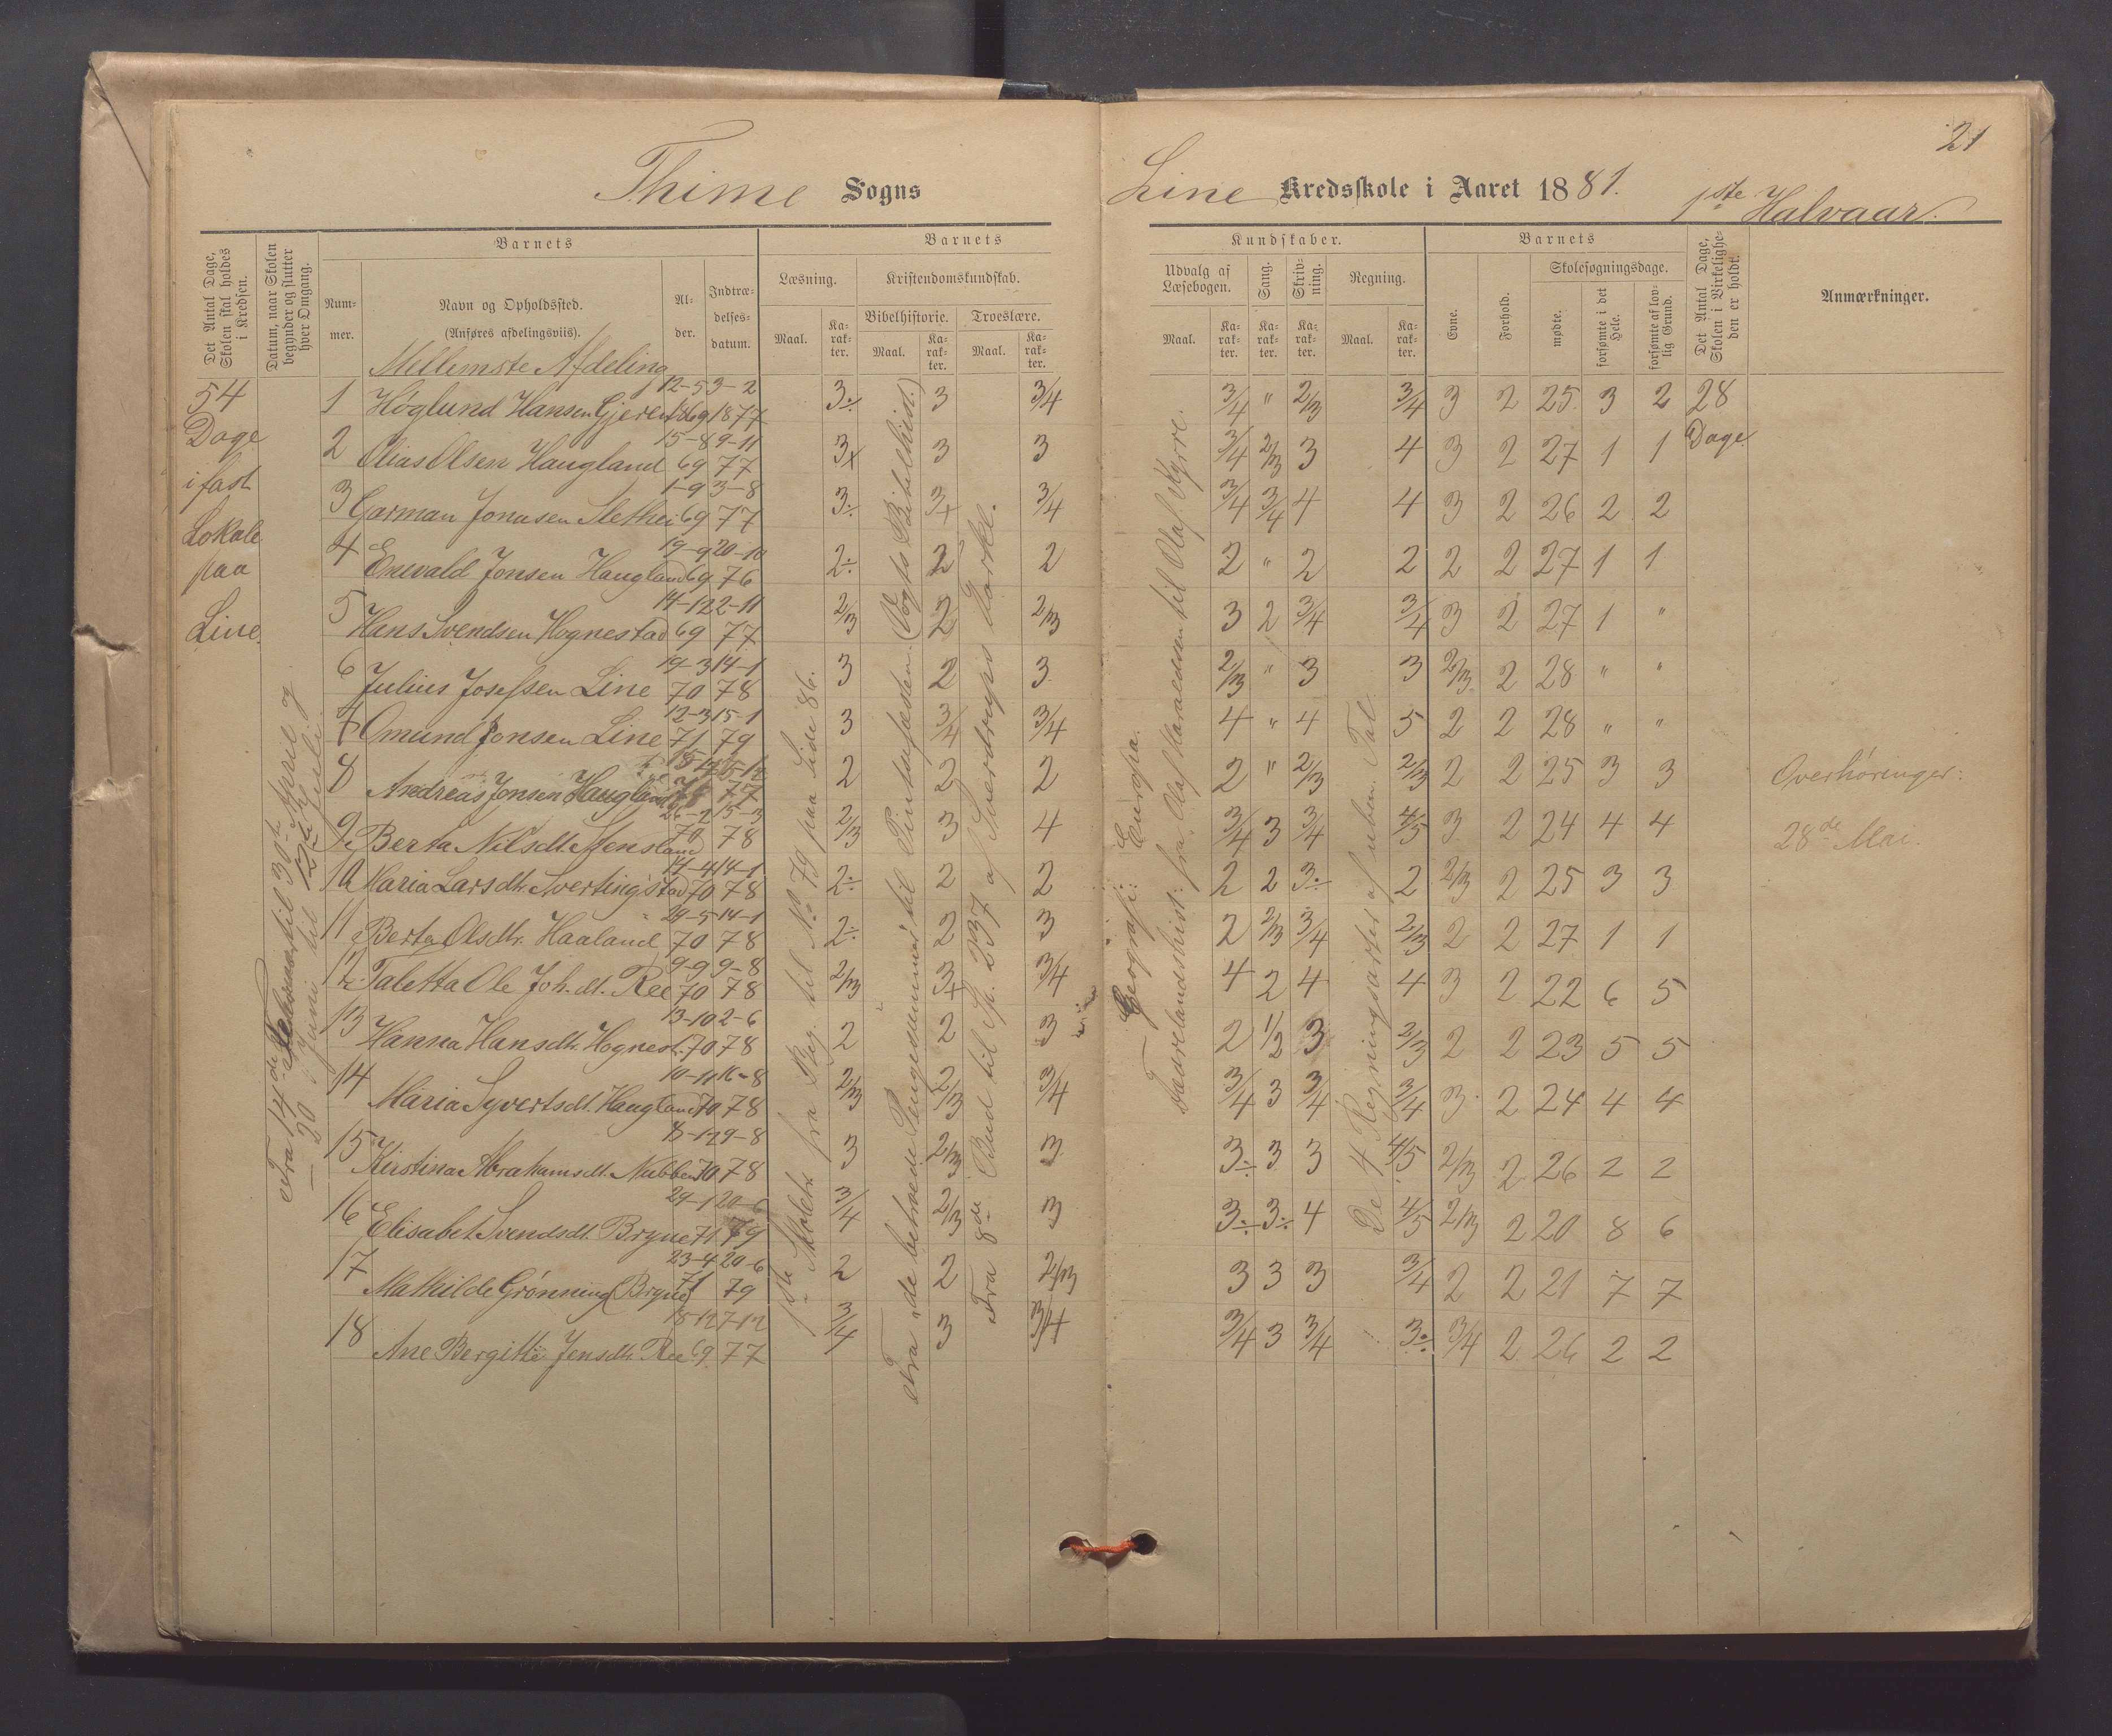 21
Thime Sogns
Line Kredsskole i Aaret 1881. 1ste Halvaar.
Det Antal Dage, Skolen skal holdes i Kredsen.
Datum, naar Skolen begynder og slutter hver Omgang.
Barnets
Nummer.
Navn og Opholdssted.
(Anføres afdelingsviis).
Alder.
Indtrædelsesdatum.
Barnets
Læsning.
Maal.
Karakter.
Kristendomskundskab.
Bibelhistorie.
Maal.
Karakter.
Troeslære.
Maal.
Karakter.
Kundskaber.
Udvalg af Læsebogen.
Maal.
Karakter.
Sang.
Karakter.
Skrivning.
Karakter.
Regning.
Maal.
Karakter.
Barnets
Evne.
Forhold.
Skolesøgningsdage.
mødte.
forsømte i det Hele.
forsømte af lovlig Grund.
Det Antal Dage, Skolen i Virkeligheden er holdt.
Anmærkninger.
Mellemste Afdeling
54 Dage i fast Lokale paa Line.
Fra 14de Februar til 30te April og
— 20 Juni til 12te Juli.
1ste Skoletr. fra Beg. til No 79 paa Side 86.
Fra "de betroede Penge" til Pintsefesten. (Vogts Bibelhist.)
Fra 8de Bud til Sp. 237 af Sverdrups Forkl.
Geografi: Europa.
Fædrelandshist: fra Olaf Haraldsen til Olaf Kyrre.
De 4 Regningsarter af uben. Tal.
1 Høglund Hansen Gjeren 12-5 1869 3-2 1877 3÷ 3 3/4 3/4 " 2/3 3/4 3 2 25 3 2 28 Dage
2 Olias Olsen Haugland 15-8 69 9-11 77 3x 3 3 3/4 2/3 3 4 3 2 27 1 1
3 Garman Jonasen Slethei 1-9 69 3-8 77 3÷ 3+ 3/4 3/4 3/4 4 4 3 2 26 2 2
4 Enevald Jonsen Haugland 19-9 69 20-10 76 2÷ 2 2 2 " 2 2 2 2 27 1 1
5 Hans Svendsen Hognestad 14-12 69 2-11 77 2/3 2 2/3 3 2 3/4 3/4 3 2 27 1 "
6 Julius Josefsen Line 19-3 70 14-1 78 3 2 3 2/3 " 3 3 2/3 2 28 " "
7 Omund Jonsen Line 12-3 71 15-1 79 3 3/4 3/4 4 " 4 5 2 2 28 " "
8 Andreas Jonsen Haugland 77 2 2 2 2 " 2/3 2/3 2 2 25 3 3 Overhøringer:
9 Berta Nilsdt. Stensland 26-2 70 15-3 78 2/3 3 4 3/4 3 3/4 4/5 3 2 24 4 4 28de Mai.
10 Maria Larsdtr. Svertingstad 11-4 70 14-1 78 2÷ 2 2 2 2 3÷ 2 2/3 2 25 3 3
11 Berta Olsdtr. Haaland 29-5 70 14-1 78 2÷ 2 3 2 2/3 3/4 2/3 2 2 27 1 1
12 Taletta Ole Joh.dt. Ree 9-9 70 9-8 78 2/3 3+ 3/4 4 2 4 4 3 2 22 6 5
13 Hanna Hansdtr. Hognest. 13-10 70 2-6 78 2 2 3 2 1/2 3 2/3 2 2 23 5 5
14 Maria Syvertsdt. Haugland 10-11 70 16-8 78 2/3 2/3 3/4 3/4 3 3/4 3/4 3 2 24 4 4
15 Kirstina Abrahamsdt. Nubben 70 9-8 78 3 2/3 3 3÷ 3 3 4/5 2/3 2 26 2 2
16 Elisabet Svendsdt. Bryne 29-1 71 20-6 79 3/4 2/3 3 3÷ 3÷ 4 4/5 2/3 2 20 8 6
17 Mathilde Grønning (Bryne) 23-4 71 20-6 79 2 2 2/3 3 3 3 3/4 2 2 21 7 7
18 Ane Bergitte Jensdtr. Ree 18-12 69 7-12 77 3/4 3 3/4 3/4 3 3/4 3÷ 3/4 2 26 2 2